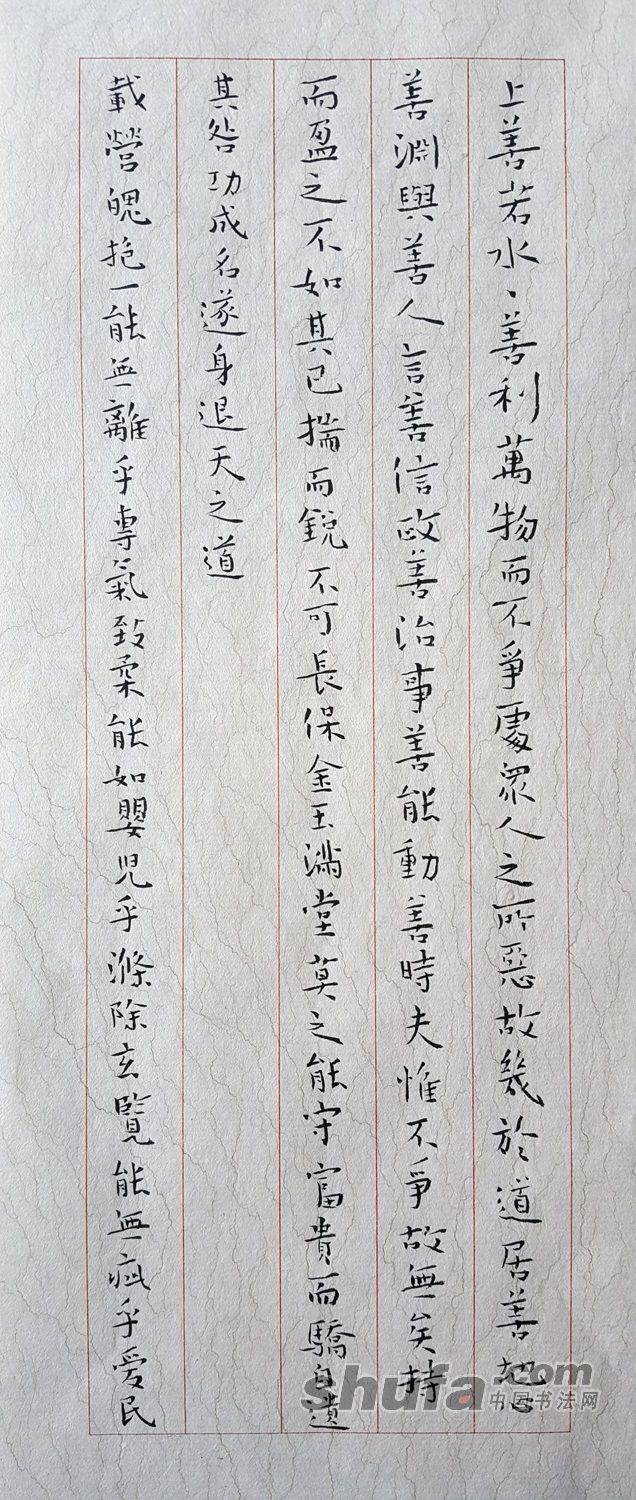 上善若水、善利萬物而不爭處眾人之所惡故幾於道居善地心
善淵與善人言善信政善治事善能動善時夫惟不爭故無矣持
而盈之不如其已揣而銳不可長保金玉滿堂莫之能守富貴而驕自遺
其咎功成名遂身退天之道
載營魄抱一能無離乎專氣致柔能如嬰兒乎滌除玄覽能無疵乎愛民
shufa.com
中国书法网